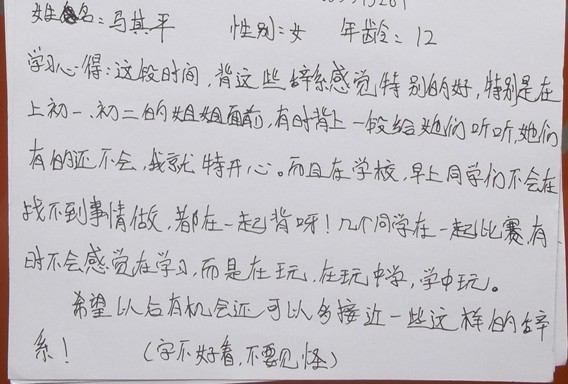 姓名：马其平 性别：女 年龄：12
学习心得：这段时间，背这些辞系感觉特别的好，特别是在
上初一、初二的姐姐面前，有时背上一段给她们听听，她们
有的还不会，我就特开心。而且在学校，早上同学们不会在
找不到事情做，都在一起背呀！几个同学在一起比赛，有
时不会感觉在学习，而是在玩，在玩中学，学中玩。
希望以后有机会还可以多接近一些这样的辞
系！ （字不好看，不要见怪）